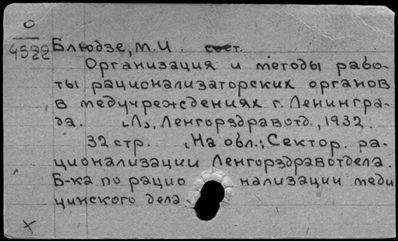 0
4522 Блюдзе, М.И. сост.
Организация и методы рабо-
ты рационализаторских органов
в медучреждениях г. Ленингра-
да. Л., Ленгорздравотд., 1932.
32 стр. На обл.: Сектор. ра-
ционализации Ленгорздравотдела.
Б-ка по рацио нализации меди
цинского дела.
х